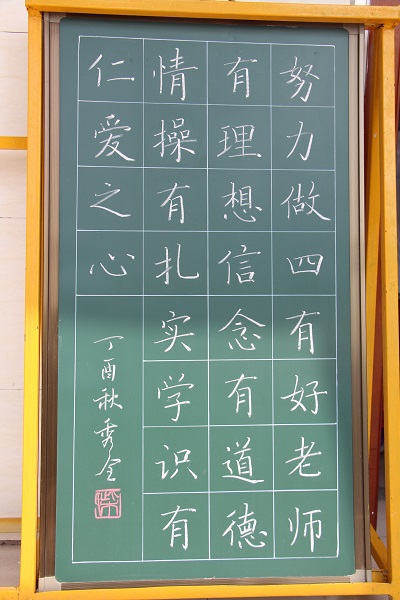 努力做四有好老师
有理想信念有道德
情操有扎实学识有
仁爱之心
丁酉秋秀全